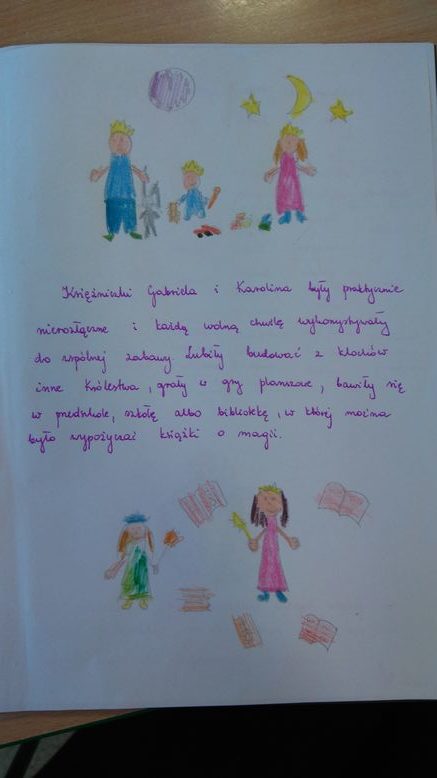 Księżniczki Gabriela i Karolina były praktycznie
nierozłączne i każdą wolną chwilę wykorzystywały
do wspólnej zabawy. Lubiły budować z klocków
inne Królestwa, grały w gry planszowe, bawiły się
w przedszkole, szkołę albo bibliotekę, w której można
było wypożyczać książki o magii.